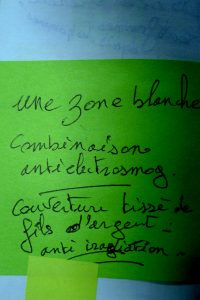 une zone blanche
Combinaisons
antiélectrosmog.
Couverture tissé de
fils d'argent -
anti irradiation -